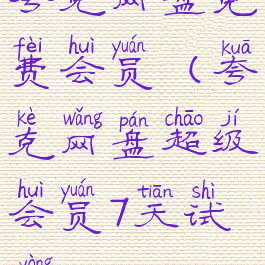 夸克网盘免
fèi huì yuán kuā
费会员（夸
kè wǎng pán chāo jí
克网盘超级
huì yuán tiān shì
会员7天试
yòng